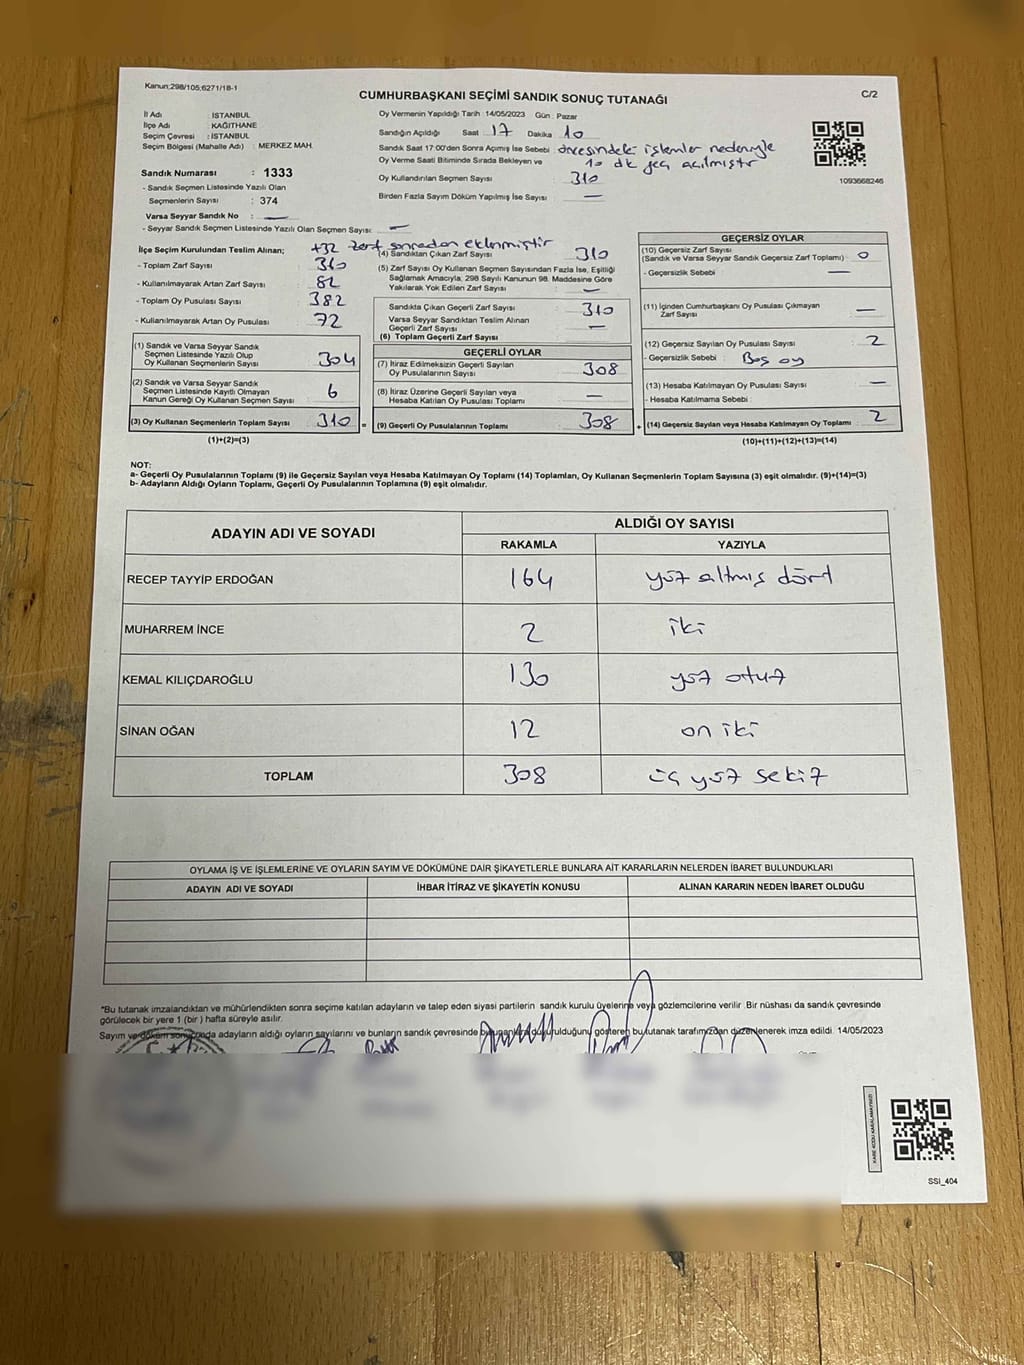 Kanun;298/105;6271/18-1
CUMHURBAŞKANI SEÇİMİ SANDIK SONUÇ TUTANAĞI
C/2
İl Adı : İSTANBUL
İlçe Adı : KAĞITHANE
Seçim Çevresi : İSTANBUL
Seçim Bölgesi (Mahalle Adı) : MERKEZ MAH.
Sandık Numarası : 1333
- Sandık Seçmen Listesinde Yazılı Olan
Seçmenlerin Sayısı : 374
Varsa Seyyar Sandık No : —
- Seyyar Sandık Seçmen Listesinde Yazılı Olan Seçmen Sayısı: —
Oy Vermenin Yapıldığı Tarih :14/05/2023 Gün : Pazar
Sandığın Açıldığı Saat 17 Dakika 10
Sandık Saat 17:00'den Sonra Açımış İse Sebebi : öncesindeki işlemler nedeniyle
Oy Verme Saati Bitiminde Sırada Bekleyen ve 10 dk geç açılmıştır
Oy Kullandırılan Seçmen Sayısı : 310
Birden Fazla Sayım Döküm Yapılmış İse Sayısı : —
1093668246
İlçe Seçim Kurulundan Teslim Alınan; +32 zarf sonradan eklenmiştir
- Toplam Zarf Sayısı : 360
- Kullanılmayarak Artan Zarf Sayısı : 82
- Toplam Oy Pusulası Sayısı : 382
- Kullanılmayarak Artan Oy Pusulası : 72
(1) Sandık ve Varsa Seyyar Sandık
Seçmen Listesinde Yazılı Olup
Oy Kullanan Seçmenlerin Sayısı : 304
(2) Sandık ve Varsa Seyyar Sandık
Seçmen Listesinde Kayıtlı Olmayan
Kanun Gereği Oy Kullanan Seçmen Sayısı : 6
(3) Oy Kullanan Seçmenlerin Toplam Sayısı : 310
(1)+(2)=(3)
(4) Sandıktan Çıkan Zarf Sayısı : 310
(5) Zarf Sayısı Oy Kullanan Seçmen Sayısından Fazla İse, Eşitliği
Sağlamak Amacıyla; 298 Sayılı Kanunun 98. Maddesine Göre
Yakılarak Yok Edilen Zarf Sayısı : —
Sandıkta Çıkan Geçerli Zarf Sayısı : 310
Varsa Seyyar Sandıktan Teslim Alınan
Geçerli Zarf Sayısı : —
(6) Toplam Geçerli Zarf Sayısı :
GEÇERLİ OYLAR
(7) İtiraz Edilmeksizin Geçerli Sayılan
Oy Pusulalarının Sayısı : 308
(8) İtiraz Üzerine Geçerli Sayılan veya
Hesaba Katılan Oy Pusulası Toplamı : —
= (9) Geçerli Oy Pusulalarının Toplamı : 308
GEÇERSİZ OYLAR
(10) Geçersiz Zarf Sayısı
(Sandık ve Varsa Seyyar Sandık Geçersiz Zarf Toplamı) : 0
- Geçersizlik Sebebi : —
(11) İçinden Cumhurbaşkanı Oy Pusulası Çıkmayan
Zarf Sayısı : —
(12) Geçersiz Sayılan Oy Pusulası Sayısı : 2
- Geçersizlik Sebebi : Boş oy
(13) Hesaba Katılmayan Oy Pusulası Sayısı : —
- Hesaba Katılmama Sebebi :
+ (14) Geçersiz Sayılan veya Hesaba Katılmayan Oy Toplamı : 2
(10)+(11)+(12)+(13)=(14)
NOT:
a- Geçerli Oy Pusulalarının Toplamı (9) ile Geçersiz Sayılan veya Hesaba Katılmayan Oy Toplamı (14) Toplamları, Oy Kullanan Seçmenlerin Toplam Sayısına (3) eşit olmalıdır. (9)+(14)=(3)
b- Adayların Aldığı Oyların Toplamı, Geçerli Oy Pusulalarının Toplamına (9) eşit olmalıdır.
ADAYIN ADI VE SOYADI
ALDIĞI OY SAYISI
RAKAMLA YAZIYLA
RECEP TAYYİP ERDOĞAN 164 yüz altmış dört
MUHARREM İNCE 2 iki
KEMAL KILIÇDAROĞLU 130 yüz otuz
SİNAN OĞAN 12 on iki
TOPLAM 308 üç yüz sekiz
OYLAMA İŞ VE İŞLEMLERİNE VE OYLARIN SAYIM VE DÖKÜMÜNE DAİR ŞİKAYETLERLE BUNLARA AİT KARARLARIN NELERDEN İBARET BULUNDUKLARI
ADAYIN ADI VE SOYADI İHBAR İTİRAZ VE ŞİKAYETİN KONUSU ALINAN KARARIN NEDEN İBARET OLDUĞU
*Bu tutanak imzalandıktan ve mühürlendikten sonra seçime katılan adayların ve talep eden siyasi partilerin sandık kurulu üyelerine veya gözlemcilerine verilir. Bir nüshası da sandık çevresinde
görülecek bir yere 1 (bir ) hafta süreyle asılır.
Sayım ve döküm sonucunda adayların aldığı oyların sayılarını ve bunların sandık çevresinde gösteren bu tutanak tarafımızdan düzenlenerek imza edildi. 14/05/2023
KARE KODU KARALAMAYINIZ!
SSI_404